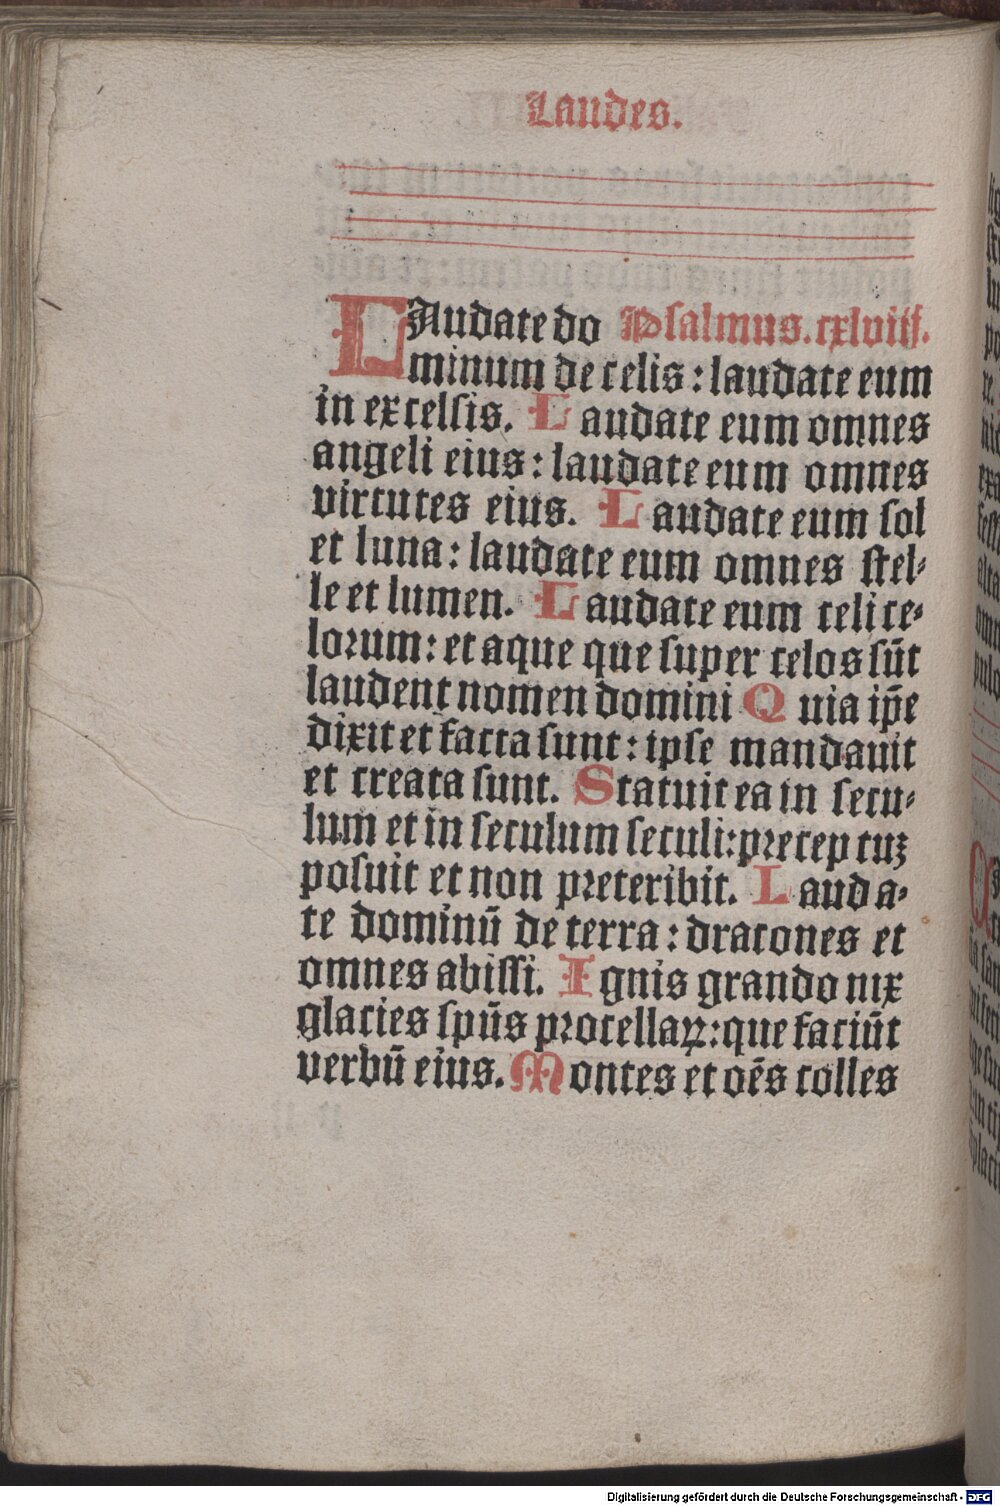 Laudes.
LAudate do Psalmus.cxlviij.
minum de celis : laudate eum
in excelsis. Laudate eum omnes
angeli eius : laudate eum omnes
virtutes eius. Laudate eum sol
et luna : laudate eum omnes stel-
le et lumen. Laudate eum celi ce-
lorum : et aque que super celos sūt
laudent nomen domini Quia ip̄e
dixit et facta sunt : ipse mandauit
et creata sunt. Statuit ea in secu-
lum et in seculum seculi: preceptuꝫ
posuit et non preteribit. Lauda-
te dominū de terra : dracones et
omnes abissi. Ignis grando nix
glacies sp̄us procellaꝝ: que faciūt
verbū eius. Montes et oēs colles
Digitalisierung gefördert durch die Deutsche Forschungsgemeinschaft - DFG